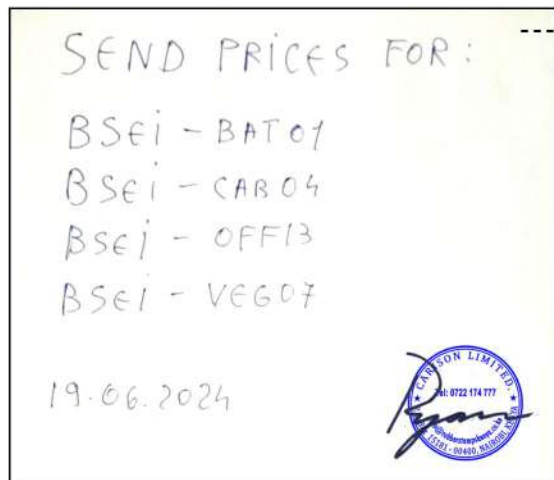 SEND PRICES FOR:
BSEI - BAT01
BSEI - CAB04
BSEI - OFF13
BSEI - VEG07
19.06.2024
CARLSON LIMITED.
Tel: 0722 174 777
15181 - 00400, NAIROBI, KENYA
Ryan